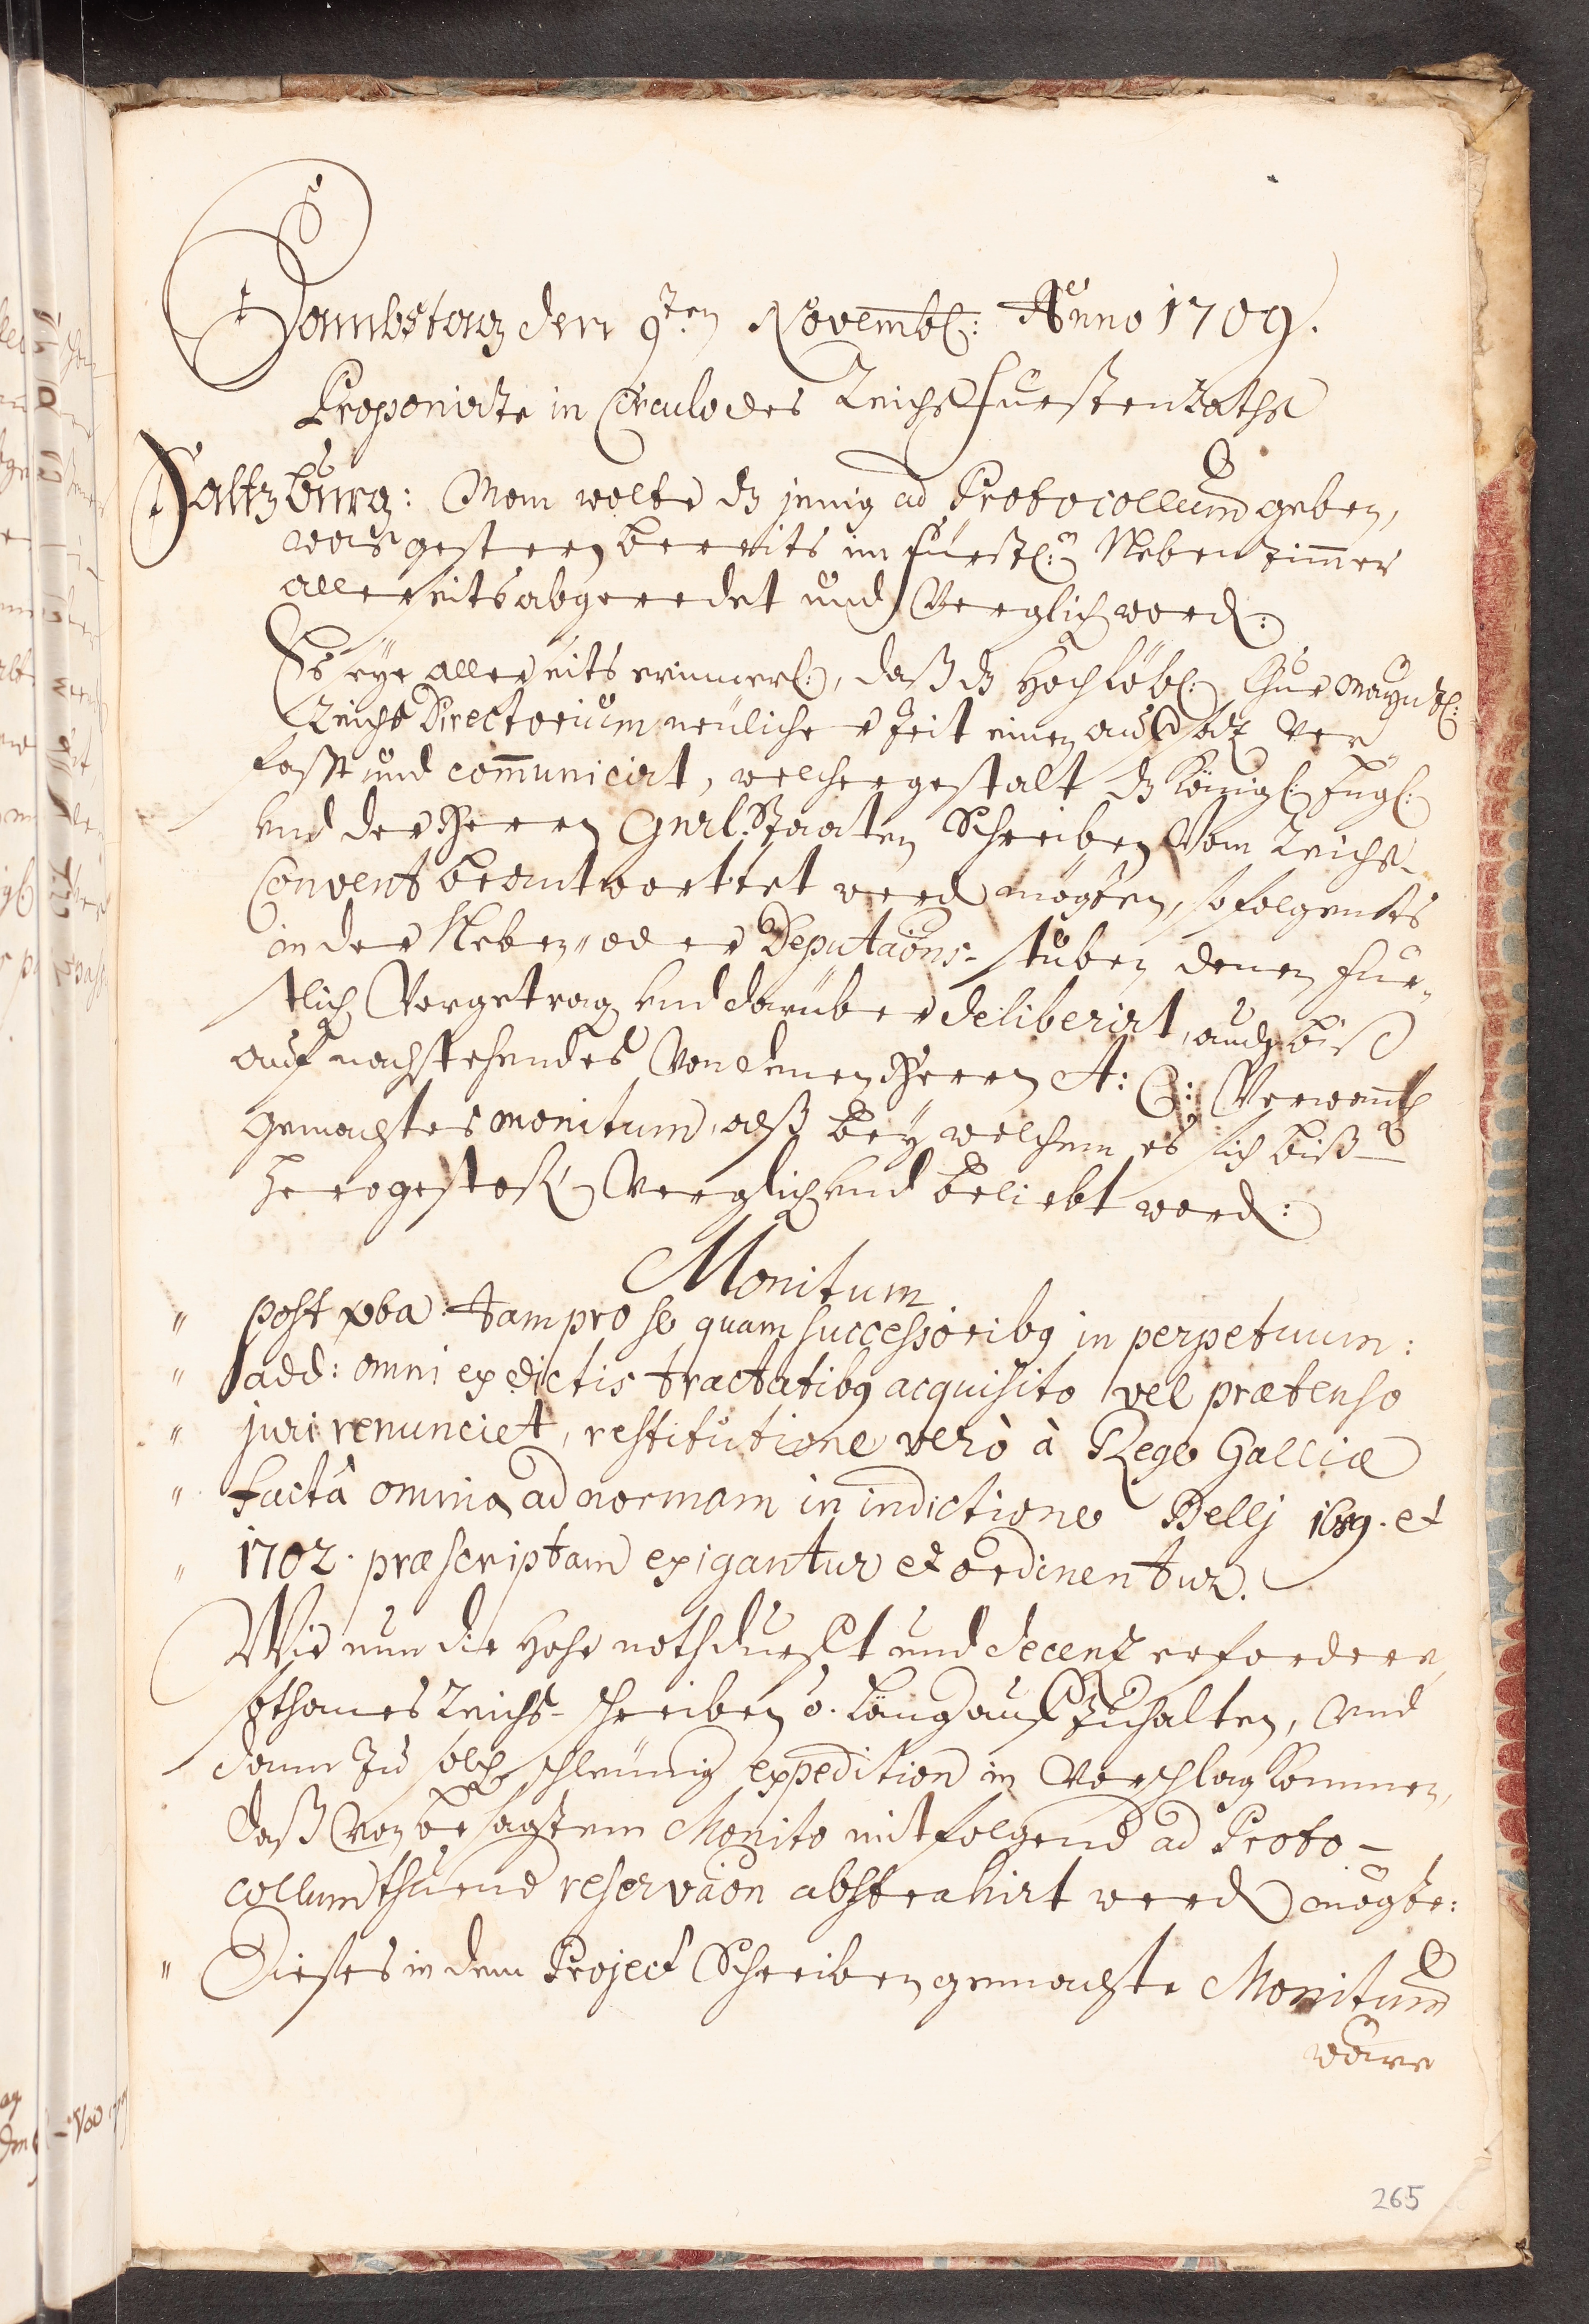 Sambstag den 9.ten Novembl: Anno 1709.
Proponirte in Circulo des Reichs Fürsten Raths
Saltzburg: Man wolte dz jenig ad Protocollum geben,
was gestern bereits im Fürstl:n Neben zimmer
allerseits abgeredet und Verglich word:
Es seye allerseits erinnerl:, daß dz Hochlöbl: Chur Mayntzl:
Reichs Directorium neulicher Zeit einen aufsatz Ver„
fasst und communicirt, welchergestalt dz Königl: Engl:
und der Herren Gnrl. Staaten Schreiben Vom Reichs-
Convent beantwortet werd mögten, so folgents
in der Neben„ oder Deputaons- stuben denen Für„
stlich Vorgetrag und darüber deliberirt, auch biß
auf nachstehendes Von denen Herren A: C: Verwanth
gemachtes monitum, alß bey welchem es sich biß
hero gestoß Verglich und beliebt word:
Monitum
„ post vba: tam pro se quam successoribq in perpetuum:
„ add: omni ex dictis tractatibq acquisito vel prætenso
„ juri renunciet, restitutione verò à Rege Galliæ
„ factâ omnia ad normam in indictione Bellj 1689. et
„ 1702. præscriptam exigantur et ordinentur.
Wie nun die hohe nothdurfft und decenz erfordere,
sothanes Reichs- schreiben o. lang aufzuhalten, und
dann zu solch schleunig expedition in Vorschlag kommen,
daß Von besagtem Monito mit folgend ad Proto-
collum thuend reservaon abstrahirt werd mögte:
„ Dieses in dem Project Schreiben gemachte Monitum
wäre
265